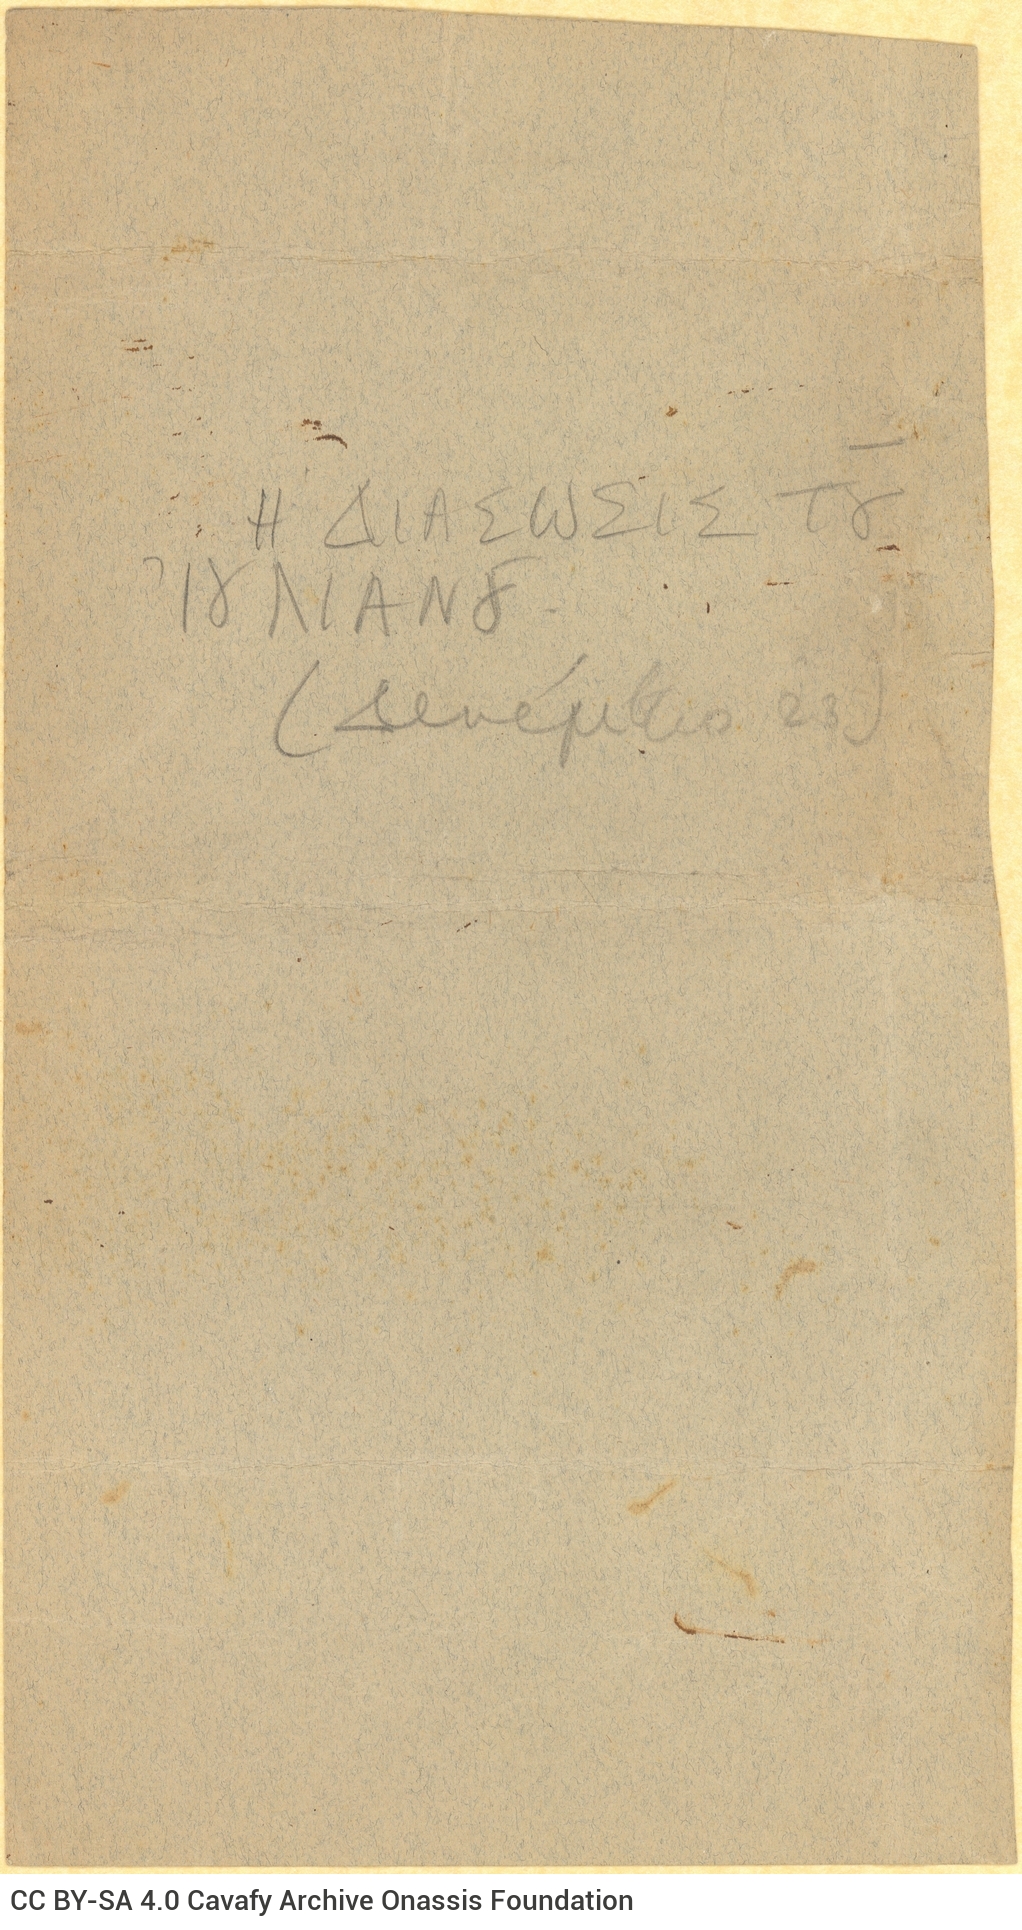 Η ΔΙΑΣΩΣΙΣ ΤȢ͂
ἸȢΛΙΑΝȢ.
(Δεκέμβριο 23)
CC BY-SA 4.0 Cavafy Archive Onassis Foundation